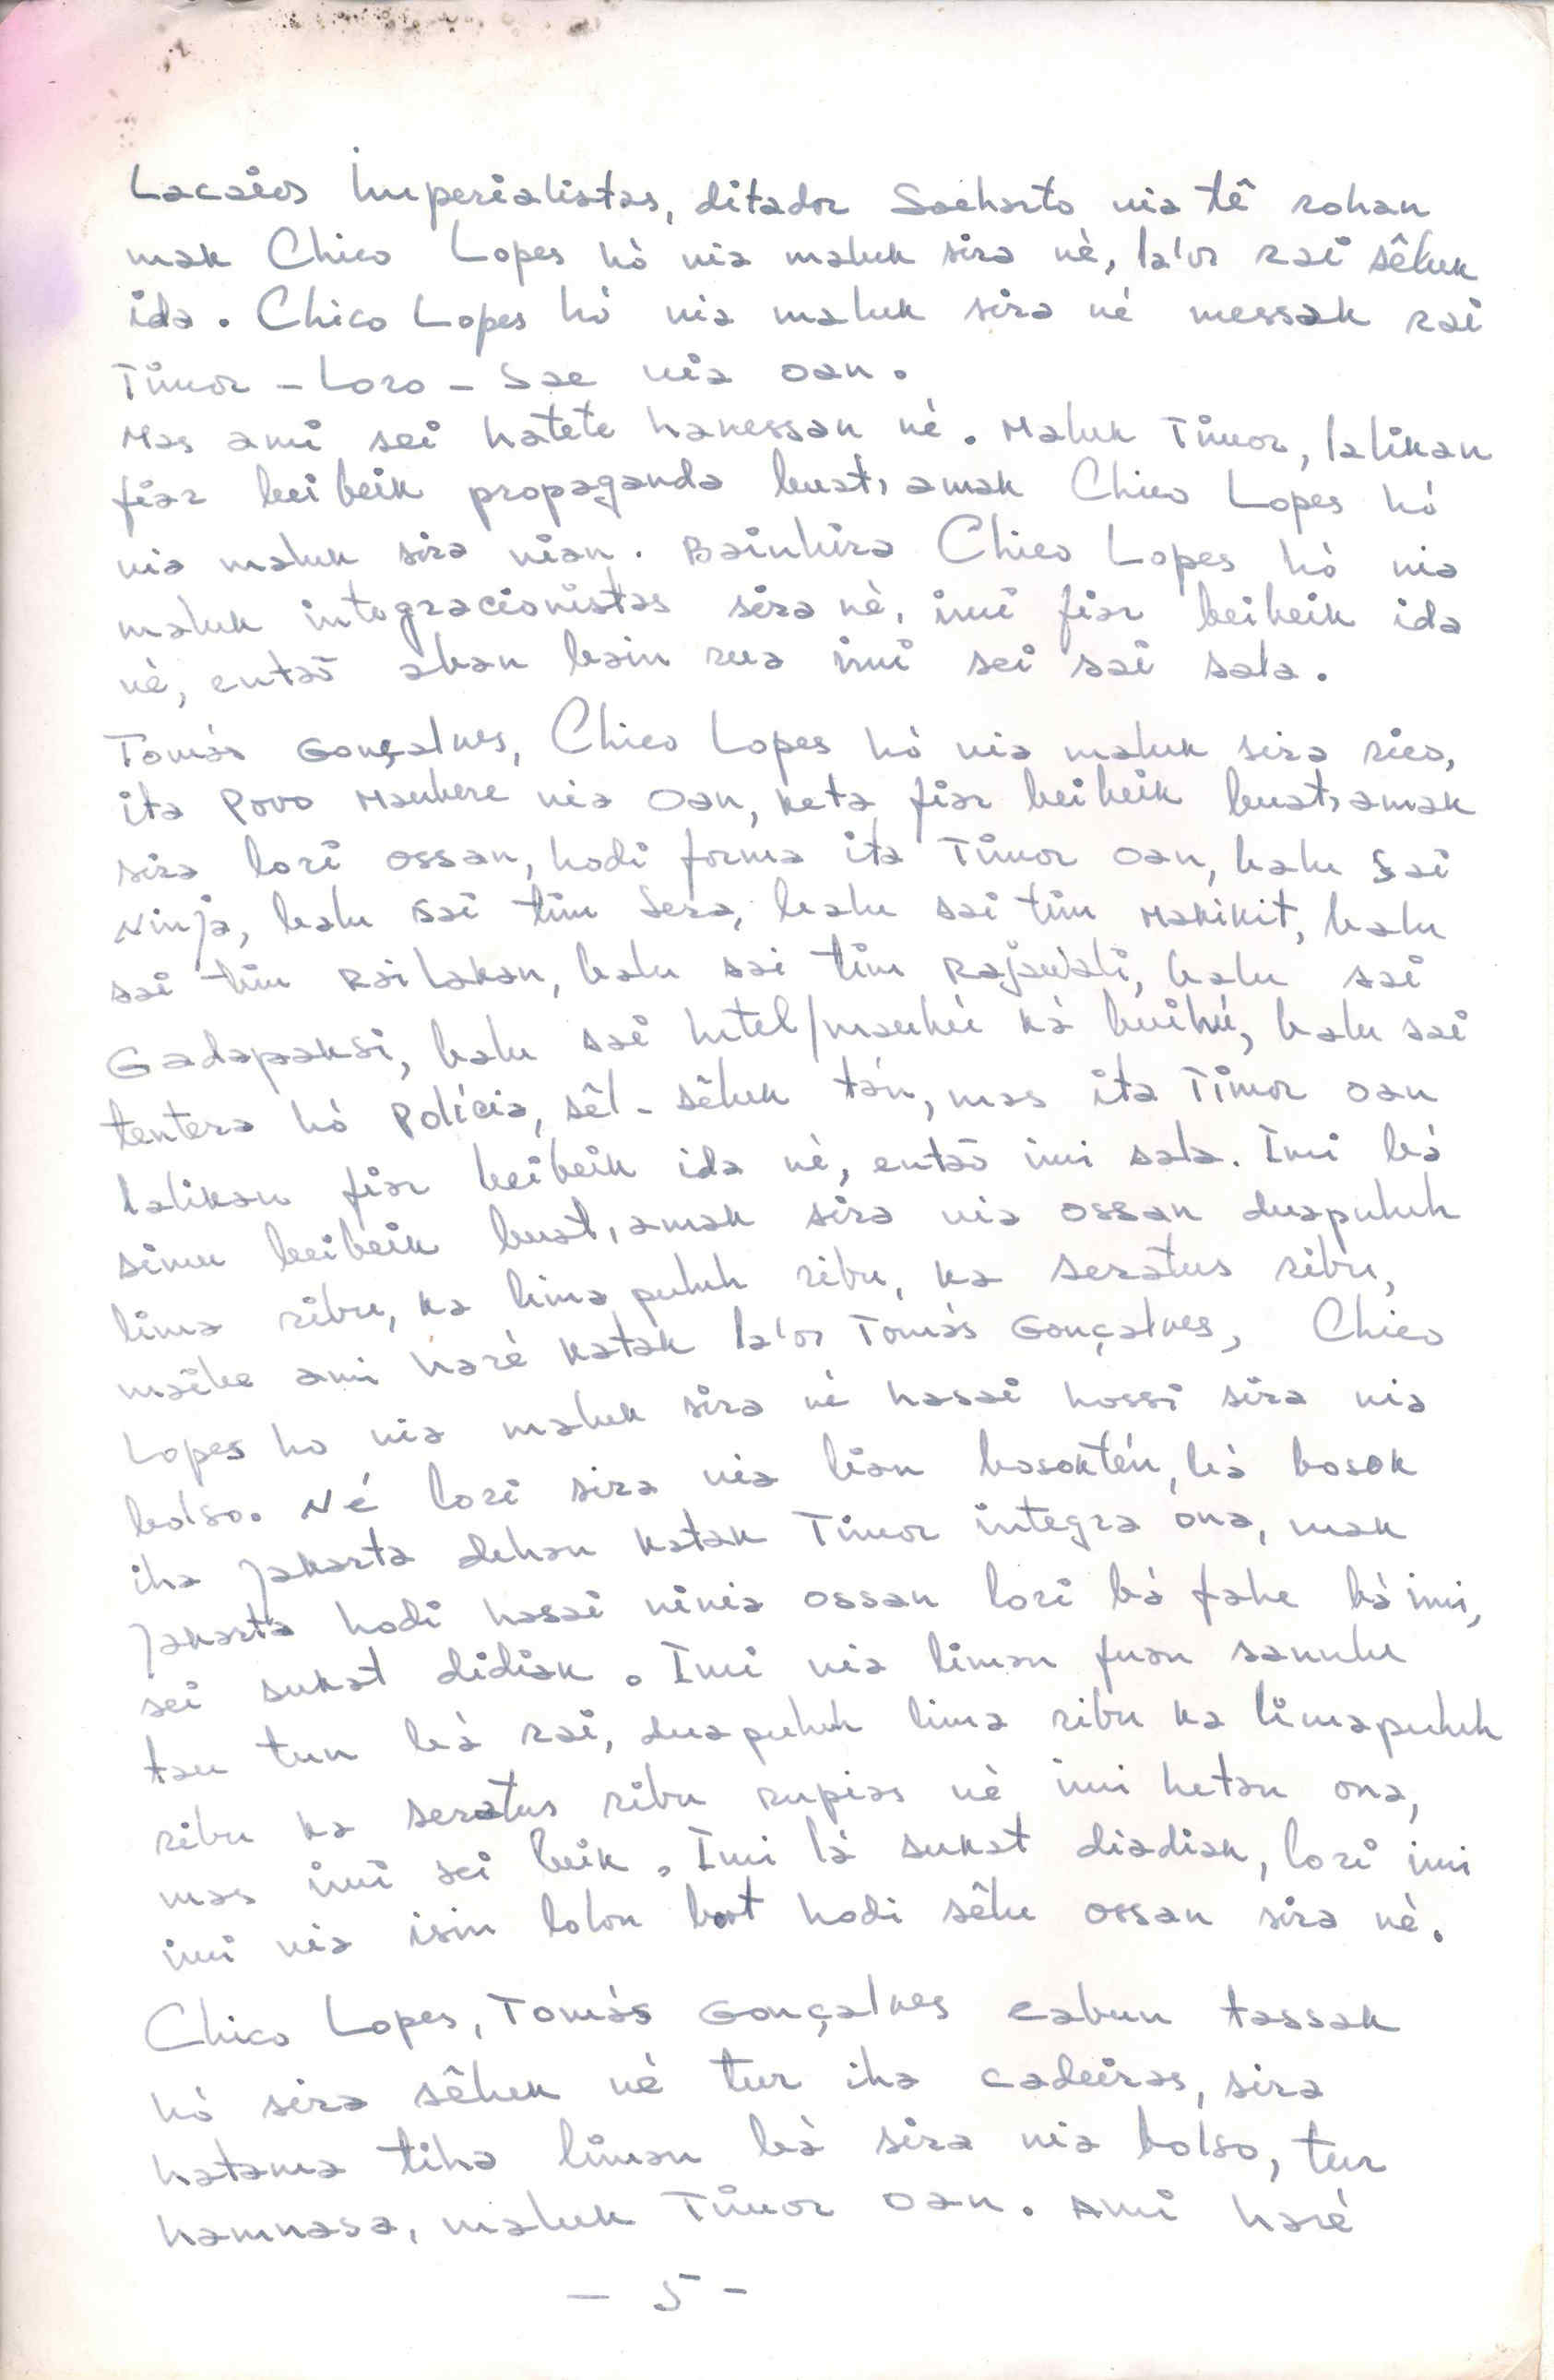 Lacaios Imperialistas, ditador Soeharto nia tê rohan
mak Chico Lopes hó nia maluk sira nè, la'os rai sêluk
ida. Chico Lopes hó nia maluk sira nè messak rai
Timor - Loro - Sae nia oan.
Mas ami sei hatete hanessan nè. Maluk Timor, lalikan
fiar beibeik propaganda buat, amak Chico Lopes hó
nia maluk sira nian. Bainhira Chico Lopes hó nia
maluk integracionistas sira nè, imi fiar beibeik ida
nè, entaõ aban bain rua imi sei sai sala.
Tomás Gonçalves, Chico Lopes hó nia maluk sira rico,
ita Povo Maubere nia Oan, keta fiar beibeik buat, amak
sira lori ossan, hodi forma ita Timor oan, balu sai
Ninja, balu sai tim Sera, balu sai tim Makikit, balu
sai tim Railakan, balu sai tim Rajawali, balu sai
Gadapaksi, balu sai Intel/mauhú ká buihú, balu sai
tentera hó Polícia, sêl-sêluk tán, mas ita Timor oan
lalikan fiar beibeik ida nè, entaõ imi sala. Imi bá
simu beibeik buat, amak sira nia ossan duapuluh
lima ribu, ka lima puluh ribu, ka seratus ribu,
maibe ami haré katak la'os Tomás Gonçalves, Chico
Lopes ho nia maluk sira né hasai hossi sira nia
bolso. Né lori sira nia lian bosoktén, bá bosok
iha Jakarta dehan katak Timor integra ona, mak
Jakarta hodi hasai ninia ossan lori bá fahe bá imi,
sei sukat didiak. Imi nia liman fuan sanulu
tau tun bá rai, duapuluh lima ribu ka limapuluh
ribu ka seratus ribu rupias nè imi hetan ona,
mas imi sei beik. Imi lá sukat diadiak, lori imi
imi nia isin lolon boot hodi sêlu ossan sira nè.
Chico Lopes, Tomás Gonçalves cabun tassak
hó sira sêluk nè tur iha cadeiras, sira
hatama tiha liman bá sira nia bolso, tur
hamnasa, maluk Timor oan. Ami haré
- 5 -